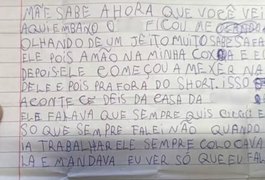 MÃE SABE AHORA QUE VOCÊ VEI
AQUI EMBAXO O FICOU ME
OLHANDO DE UM JEITO MUITO SAFA
ELE POIS A MÃO NA MINHA COXA E E
DEPOIS ELE COMEÇOU A MEXER NA
DELE E POIS PRA FORA DO SHORT. ISSO
ACONTECE DEIS DA CASA DA
ELE FALAVA QUE SEMPRE QUIS
SO QUE SEMPRE FALEI NÃO QUANDO
IA TRABALHAR ELE SEMPRE COLOCAVA
LA E MANDAVA EU VER SÓ QUE EU FAL